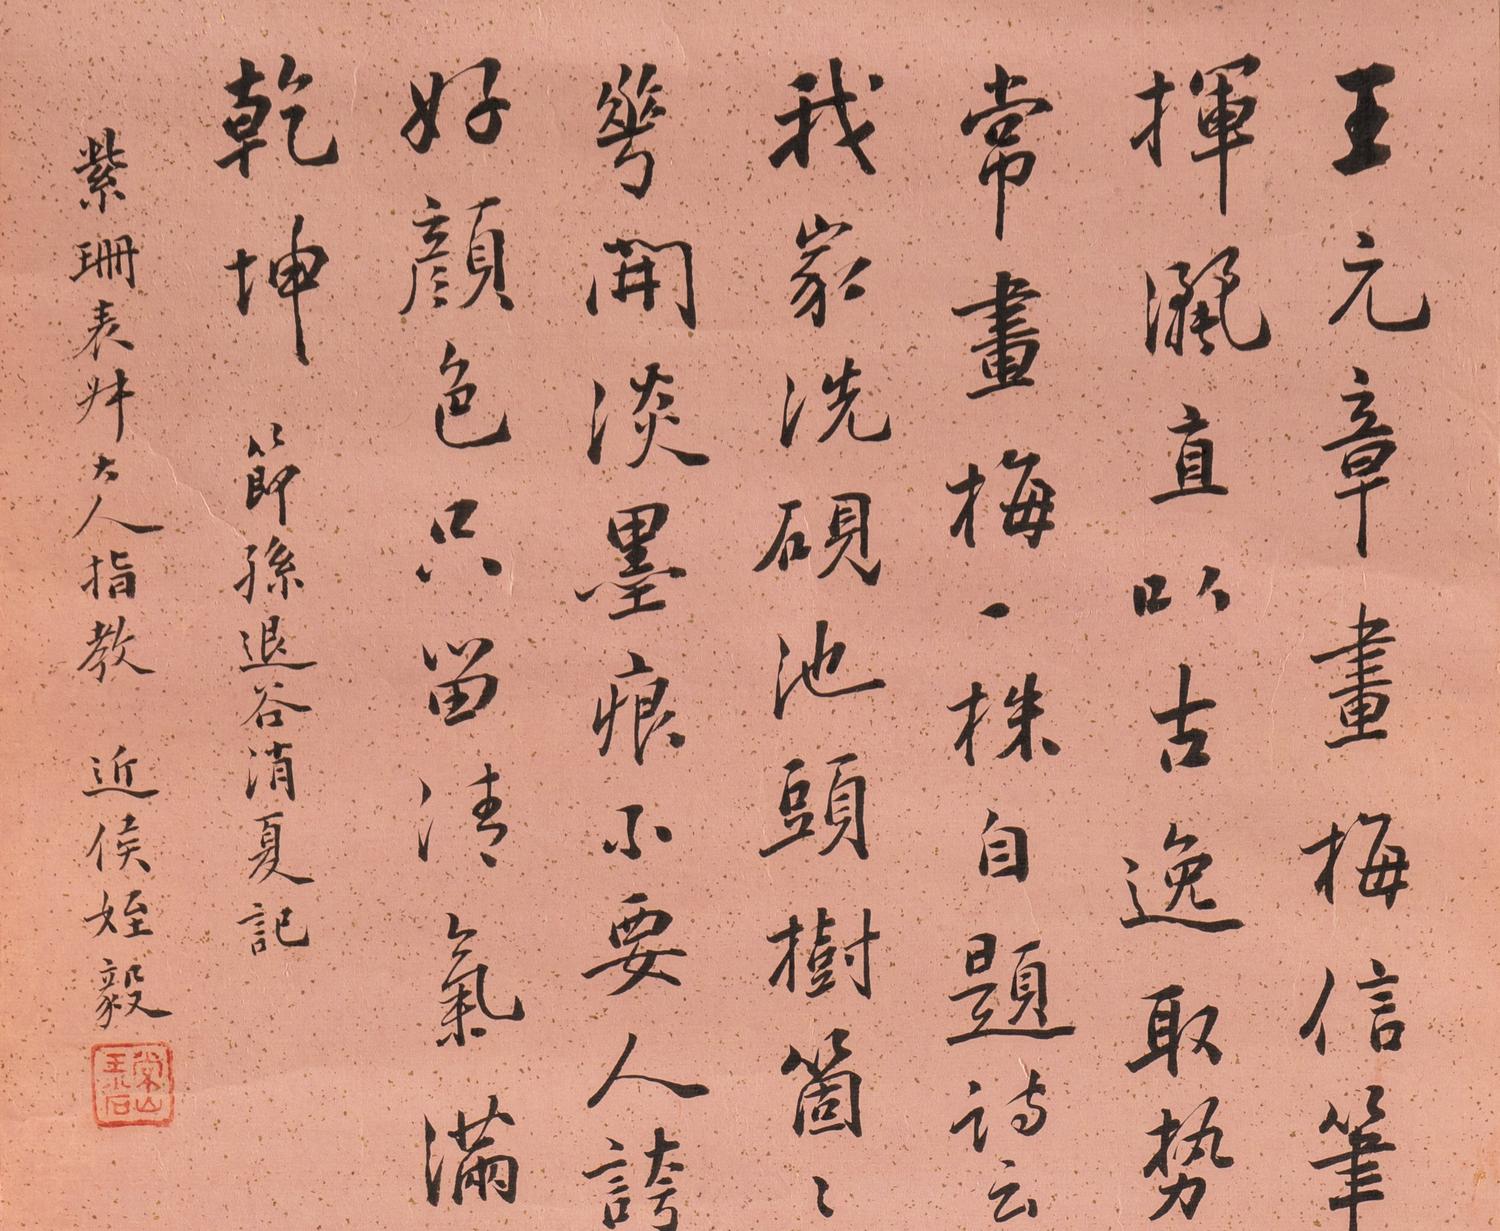 王元章畫梅信筆
揮灑直以古逸取勢
常畫梅一株自題詩云
我家洗硯池頭樹箇〻
華開淡墨痕不要人誇
好顏色只留清氣滿
乾坤 節孫退谷消夏記
紫珊表姊大人指教 近侯姪毅